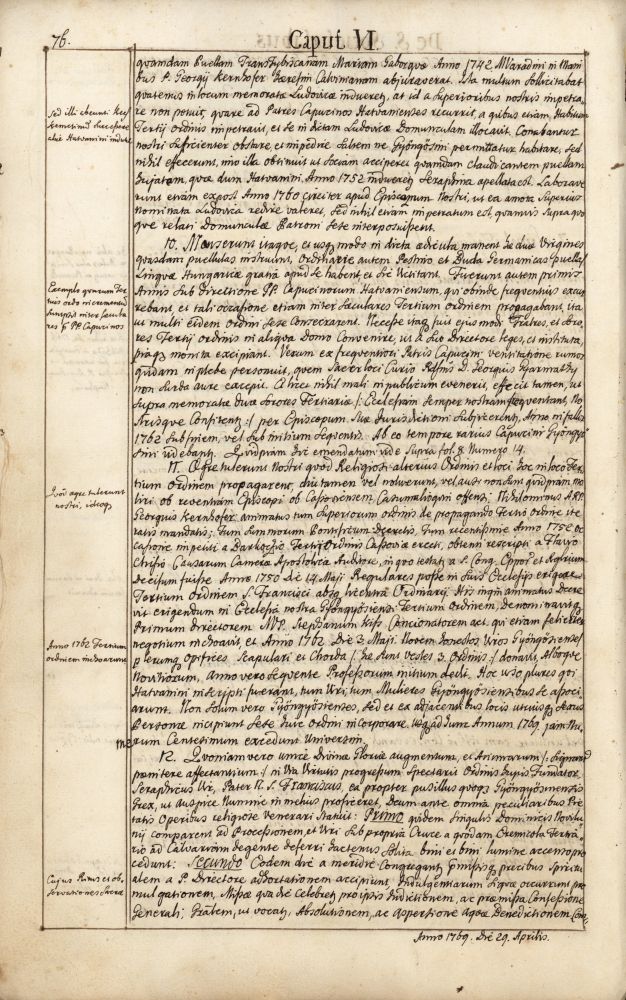 76.
Caput VI.
quamdam Puellam Transtybiscanam Mariam Gaborque Anno 1742. MVaradini in Mani
bus P. Georgij Kernhofer Hæresim Calvinianam abjuraverat. Ista multum sollicitabat
quatenus in locum memoratæ Ludovicæ indueretur, at id a Superioribus nostris impetra
re non potuit, quare ad Patres Capucinos Hatvanienses recurrit, a quibus etiam Habitum
Tertij ordinis impetravit, et se in dictam Ludovicæ Domunculam locavit. Conabantur
nostri sufficienter obstare, et impedire saltem ne Gyöngyösini permittatur habitare, sed
nihil effecerunt, imo illa obtinuit ut sociam acciperet quamdam claudicantem puellam
quæ dum Hatvanini Anno 1752 indueretur Seraphina apellata est. Laborave
runt etiam expost Anno 1760 circiter apud Episcopum Nostri, ut ea amota Superius
nominata Ludovica redire valeret, sed nihil etiam impetratum est, quamvis supra quo
que relati Domunculæ Patroni sese interposuissent.
Sed illi
Hatvanini
10. Manserunt itaque, et usque modo in dicta ædicula manent hæ duæ Virgines
quasdam puellulas instruunt, Ordinarie autem Pestino et Buda Germanicas puellas
Linguæ Hungaricæ gratia apud se habent, et sic victitant. Fuerunt autem primis
Annis sub Directione PP. Capucinorum Hatvaniensium, qui obinde frequentius excur
rebant, et tali occasione etiam inter sæculares Tertium ordinem propagabant, ita
ut multi eidem ordini sese consecrarent. Necesse itaque fuit ejusmodi Fratres, et soro
res Tertij ordinis in aliqua Domo Convenire, ut a suo Directore leges, et instituta,
piaque monita excipiant. Verum ex frequentiori Patris Capucini ventitatione rumor
quidam in plebe personuit, quem sacer loci Curio Rdssmus D. Georgius Gyarmathy
non surda aure excepit. A licet nihil mali in publicum evenerit, effecit tamen, ut
supra memoratæ duæ sorores Tertiariæ /: Ecclesiam semper nostram frequentant, No
strisque Confitentur :/ per Episcopum suæ Jurisdictioni subjicerentur, Anno ni fallor
1762 sub finem, vel sub initium sequentis. Ab eo tempore rarius Capucini Gyöngyö
sini videbantur. Quidpiam hic emendatum vide supra fol. 8. Numero 14.
Exemplo quarum Ter
tius ordo incrementum
sumpsit inter sæcula
res per PP. Capucinos
11. Ægre tulerunt Nostri quod Religiosi alterius Ordinis et loci hoc in loco Ter
tium ordinem propagarent, diu tamen vel noluerunt, vel ausi non sunt quidpiam mo
liri, ob reventiam Episcopi ob Cassoviensem offensi. Nihilominus A.R.P.
Georgius Kernhofer animatus tum superiorum ordinis de propagando Tertio ordine ite
ratis mandatis; tum summorum Pontificum Decretis, tum recentissime Anno 1750 oc
casione impetiti a Tertij Ordinis Cassoviæ erecti, obtenti rescripti a Flavio
Chisio Causarum Cameræ Apostolicæ Auditore, in quo testatur a S. Cong. Eppor. et Regularium
Decisum fuisse Anno 1750 die 14. Maji Regulares posse in suis Ecclesijs erigere
Tertium Ordinem S. Francisci absque licentia Ordinarij. His inquam animatus Decre
vit erigendum in Ecclesia nostra Gyöngyösiensi Tertium Ordinem, Denominavitque
Primum Directorem V.P. Stephanum Kiss Concionatorem act. qui etiam feliciter
negotium inchoavit, et Anno 1762 Die 3. Maji. Novem honestos Viros Gyöngyösienses
plerumque Opifices Scapulari et Chorda /: hæ sunt vestes 3. Ordinis :/ donavit, Alborque
Novitiorum, Anno vero sequente Professorum initium dedit. Hoc viso plures qui
Hatvanini inscripti fuerant, tum Viri, tum Mulieres Gyöngyösiensibus se associ
arunt. Non solum vero Gyöngyösienses, sed et ex adjacentibus locis utriusque sexus
Personæ inceperunt sese huic Ordini incorporare. Usque ad hunc Annum 1769. jam Nu
merum Centesimum excedunt Universim.
Quod ægre tulerunt
nostri, ideoque
Anno 1762 Tertium
ordinem inchoarunt
12. Quoniam vero unice Divinæ Gloriæ augmentum, et Animarum /: signanter
pœnitere affectantium :/ in Via Virtutis progressum spectarit Ordinis hujus Fundator,
Seraphicus Vir, Pater N. S. Franciscus, ea propter pusillus quoque Gyöngyösinensis
Grex, ut Auspice Numine in melius proficeret, Deum ante omnia peculiaribus Pie
tatis Operibus religiose venerari statuit: Primo quidem singulis Dominicis Novilu
nij comparent ad Processionem, et Viri sub propria Cruce a quodam Eremicola Tertia
rio ad Calvariam degente deferri hactenus solita bini et bini lumine accenso pro
cedunt: Secundo Eodem die a meridie Congregantur præmissisque precibus Spiritu
alem a P. Directore adhortationem accipiunt, Indulgentiarum siquæ occurrunt pro
mulgationem, Missæ qua die celebretur pro ipsis Indictionem, ac præmissa Confessione
Generali; Gralem, ut vocatur, Absolutionem, ac Aspersione aquæ Benedictionem Con-
Cujus Ritus et ob
servationes sacræ
Anno 1769. Die 29. Aprilis.